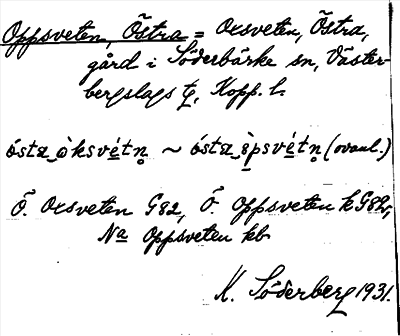 Oppsveten, Östra = Oxsveten, Östra,
gård i Söderbärke sn, Väster-
bergslags tg, Kopp. l.
ósta òksvétn̥ ~ ósta òpsvétn̥ (ovanl.)
Ö. Oxsveten G82, Ö. Oppsveten k G82,
Na Oppsveten kb
K. Söderberg 1931.